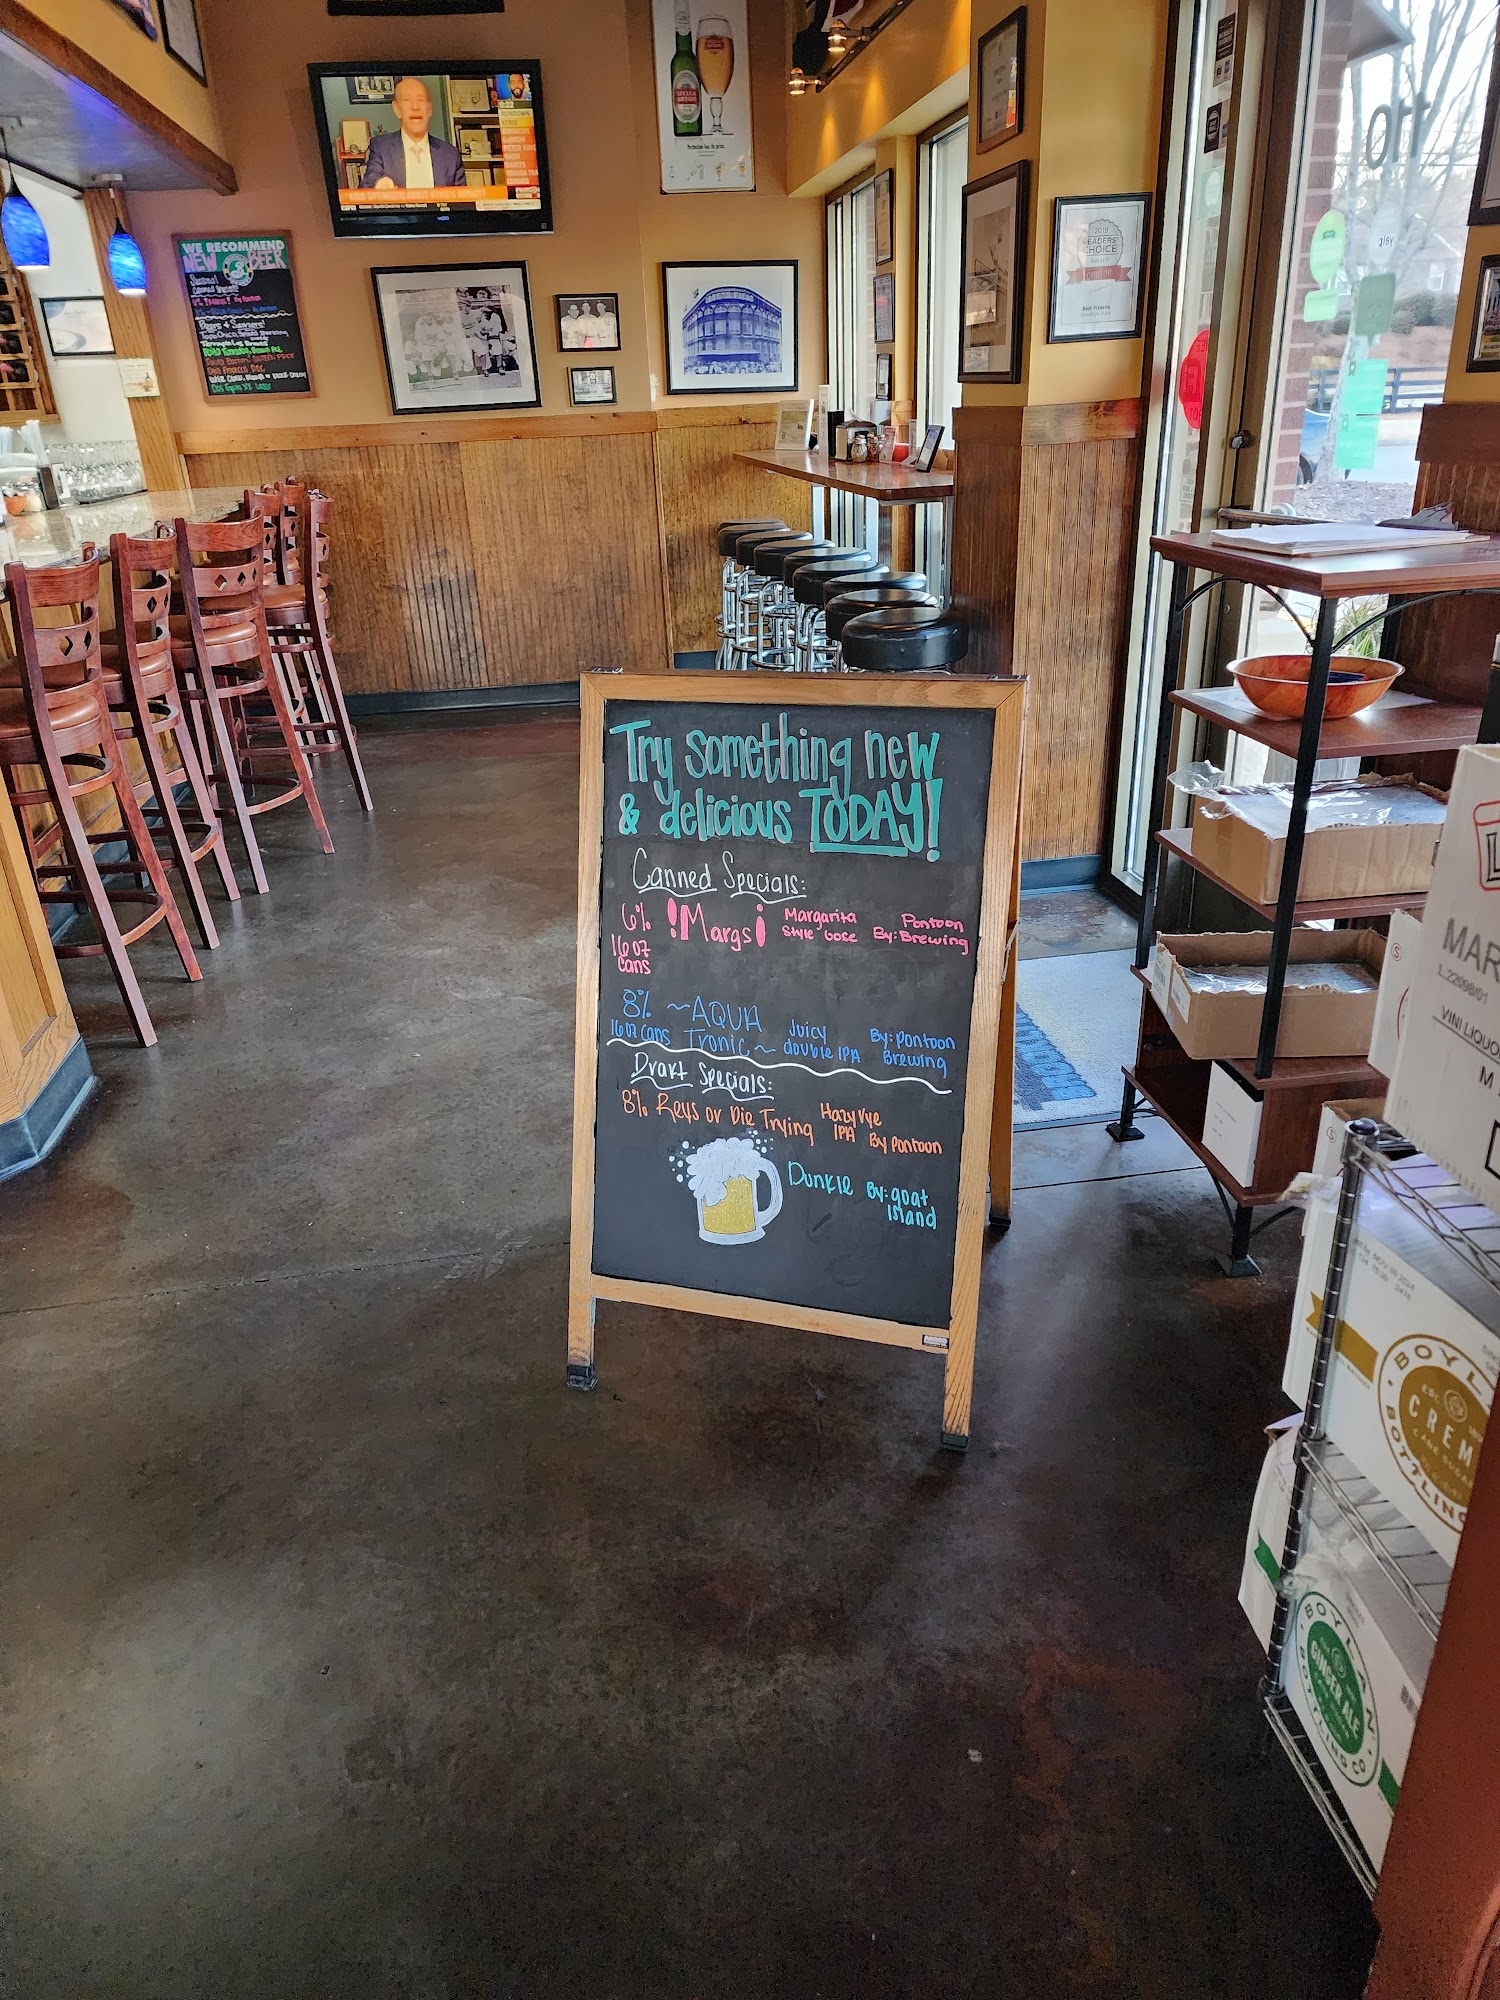 Try something new
& delicious TODAY!
Canned Specials:
6% !Margs¡ Margarita Style Gose By: Pontoon Brewing
16 oz cans
8% ~AQUA Tronic~ Juicy double IPA By: Pontoon Brewing
16 oz cans
Draft Specials:
8% Reys or Die Trying Hazy rye IPA By Pontoon
Dunkle By: goat island
WE RECOMMEND
NEW BEER
STELLA ARTOIS
RUNDOWN
2019
READERS'
CHOICE
Award
Best Pizzeria
MAR
L.22098/01
VINI LIQUO
M
BOYL
CREM
CANE SUGAR
BOTTLING
BOYLAN
GINGER ALE
BOTTLING CO